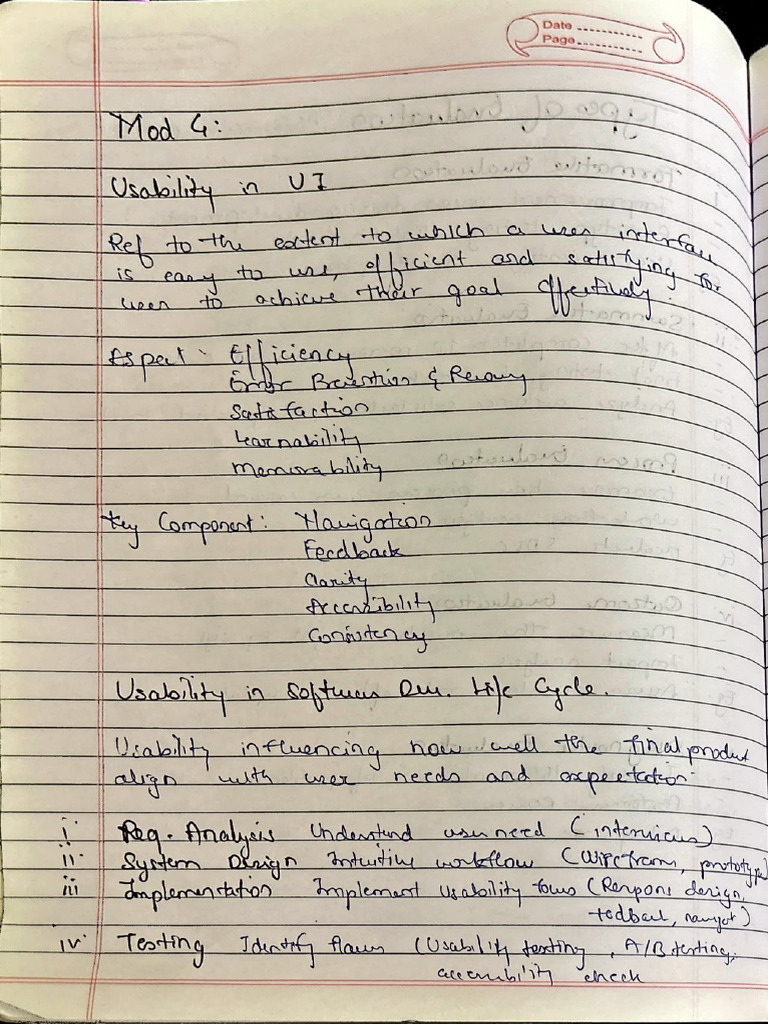 Date
Page
Mod 4:
Usability in UI
Ref to the extent to which a user interface
is easy to use, efficient and satisfying for
user to achieve their goal effectively.
Aspect: Efficiency
Error Prevention & Recovery
Satisfaction
Learnability
Memorability
Key Component: Navigation
Feedback
Clarity
Accessibility
Consistency
Usability in Software Dev. Life Cycle.
Usability influencing how well the final product
align with user needs and expectation.
i Req. Analysis Understand user need (interviews)
ii System Design Intuitive workflow (Wirefram, prototype)
iii Implementation Implement Usability (Respons design,
feedback, navigat)
iv Testing Identify flaws (Usability testing, A/B testing,
accessibility check